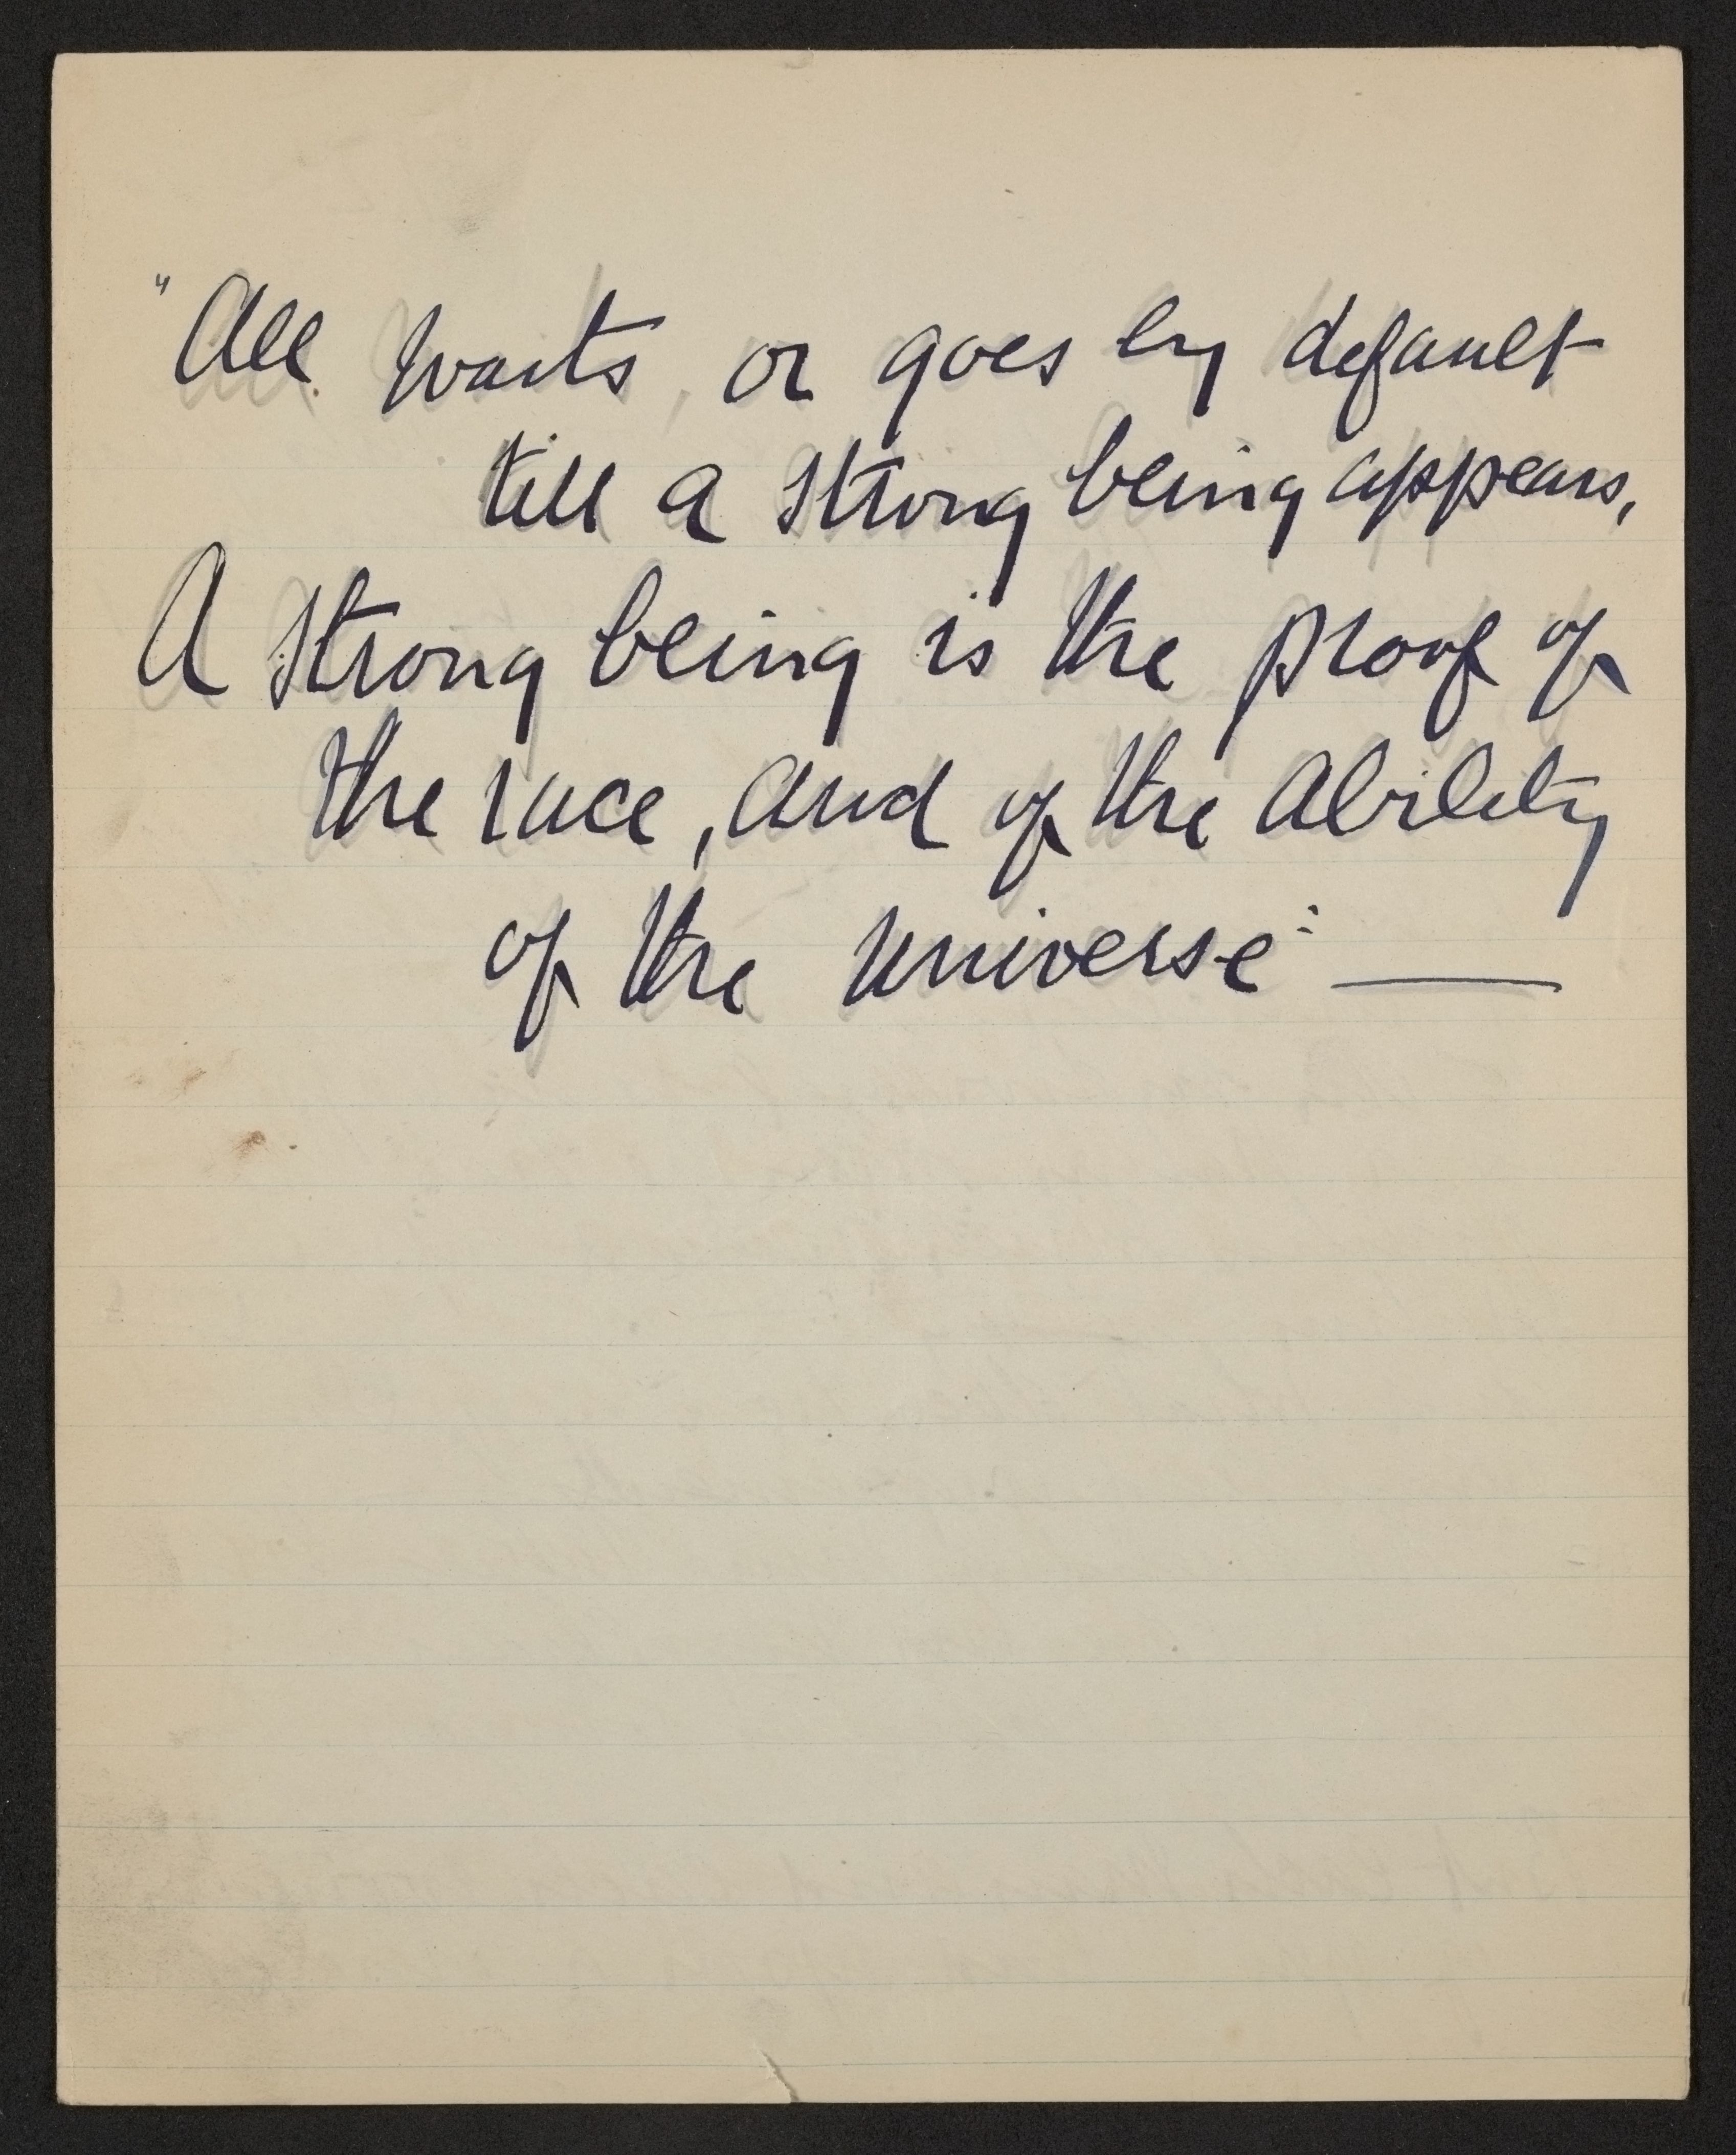 "All waits, or goes by default
till a strong being appears,
A strong being is the proof of
the race, and of the ability
of the universe: —